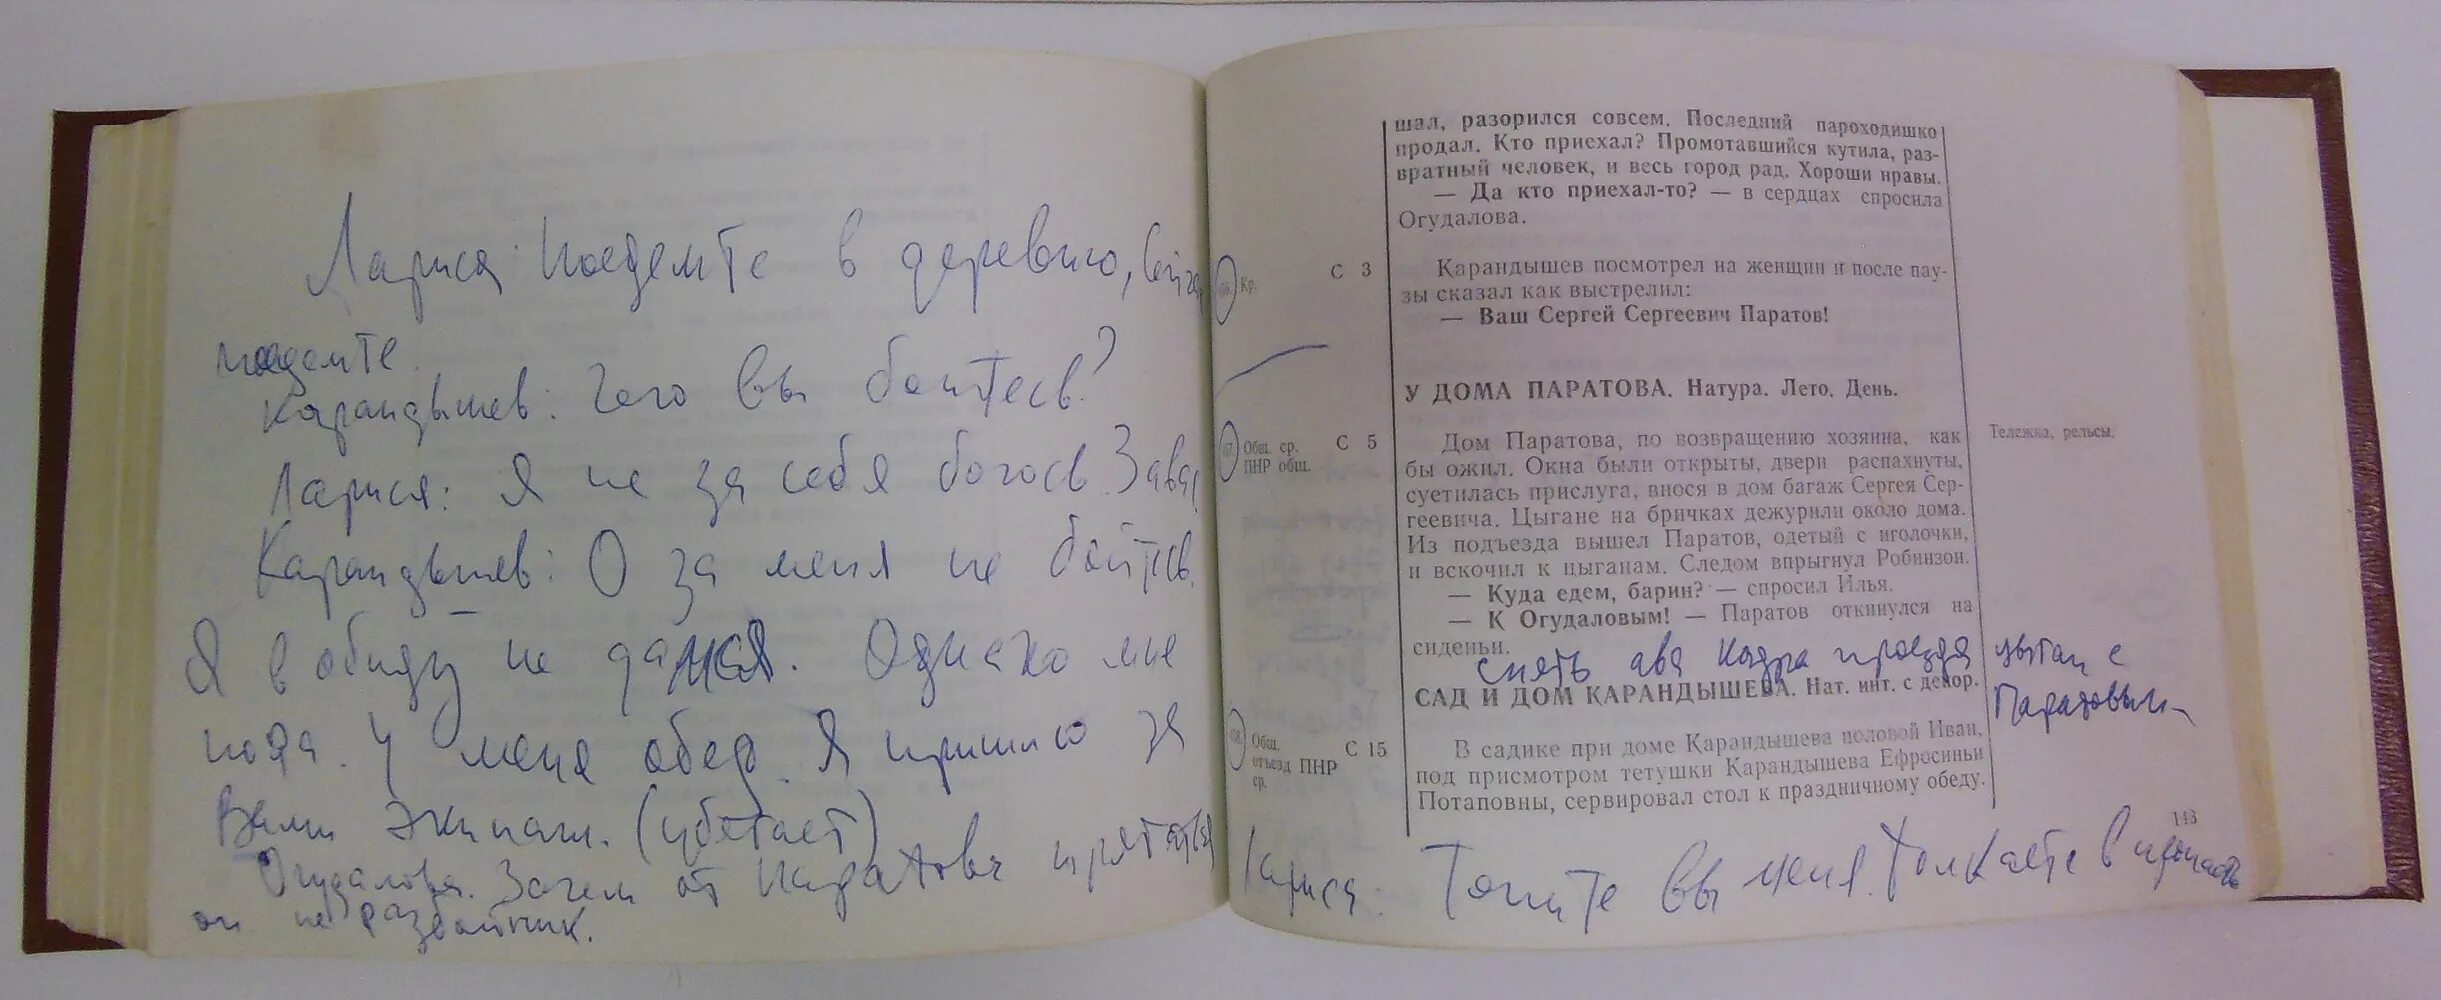 Лариса: Поедемте в деревню, сейчас
поедемте.
Карандышев: Чего вы боитесь?
Лариса: Я не за себя боюсь За вас
Карандышев: О за меня не бойтесь.
Я в обиду не дамся. Однако мне
пора. У меня обед. Я пришлю за
Вами экипаж. (убегает)
Огудалова. Зачем от Паратова прятаться
он не разбойник.
шал, разорился совсем. Последний пароходишко
продал. Кто приехал? Промотавшийся кутила, раз-
вратный человек, и весь город рад. Хороши нравы.
— Да кто приехал-то? — в сердцах спросила
Огудалова.
Кр. С 3 Карандышев посмотрел на женщин и после пау-
зы сказал как выстрелил:
— Ваш Сергей Сергеевич Паратов!
У ДОМА ПАРАТОВА. Натура. Лето. День.
Общ. ср. С 5 Дом Паратова, по возвращению хозяина, как Тележка, рельсы.
ПНР общ. бы ожил. Окна были открыты, двери распахнуты,
суетилась прислуга, внося в дом багаж Сергея Сер-
геевича. Цыгане на бричках дежурили около дома.
Из подъезда вышел Паратов, одетый с иголочки,
и вскочил к цыганам. Следом впрыгнул Робинзон.
— Куда едем, барин? — спросил Илья.
— К Огудаловым! — Паратов откинулся на
сиденьи.
снять два кадра проезда цыган с
Паратовым
САД И ДОМ КАРАНДЫШЕВА. Нат. инт. с декор.
Общ. С 15 В садике при доме Карандышева половой Иван,
отъезд ПНР под присмотром тетушки Карандышева Ефросиньи
ср. Потаповны, сервировал стол к праздничному обеду.
143
Лариса: Топите вы меня. Толкаете в пропасть